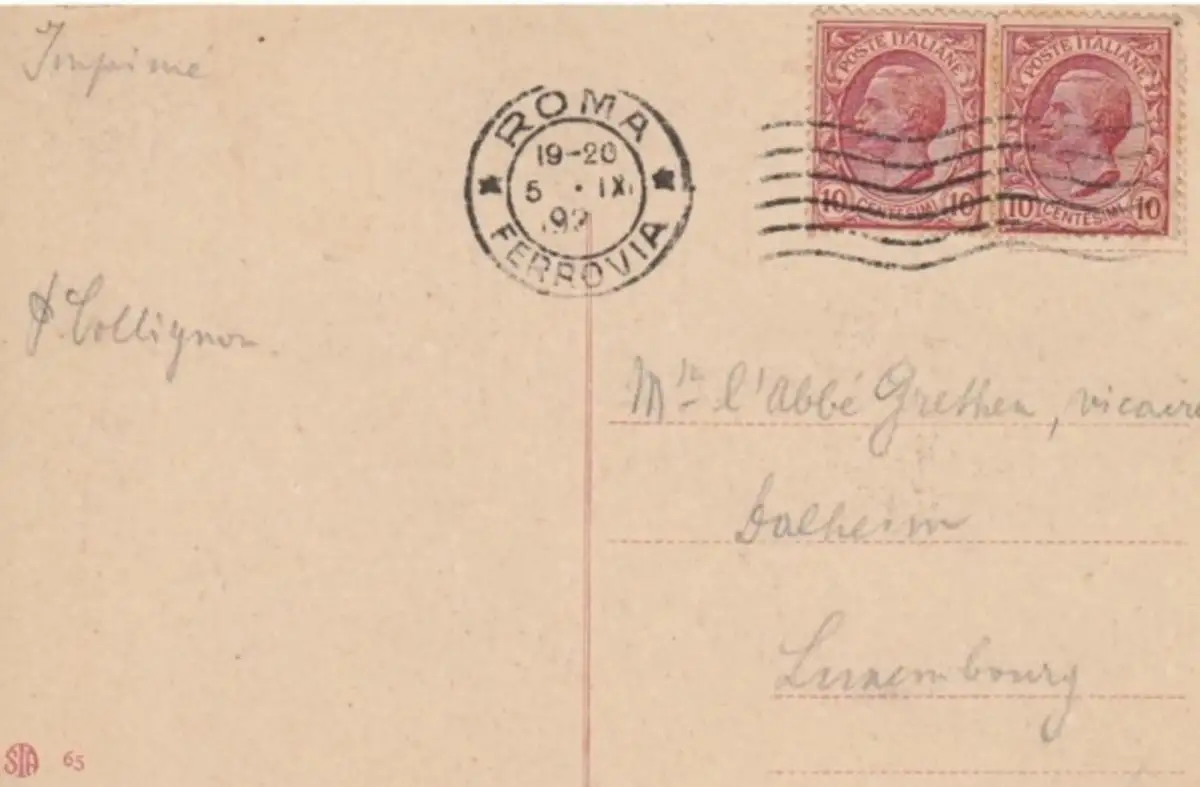 Imprimé
POSTE ITALIANE
10 CENTESIMI 10
POSTE ITALIANE
10 CENTESIMI 10
ROMA
19-20
5 · IX
192
FERROVIA
Collignon
Mr l'Abbé Grethen, vicaire
Dalheim
Luxembourg
STA 65